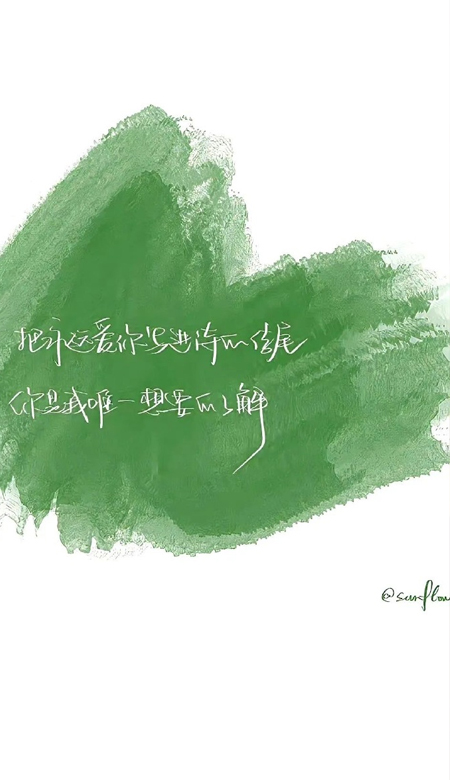 把永远爱你写进诗的结尾
你是我唯一想要的了解
@sunflow